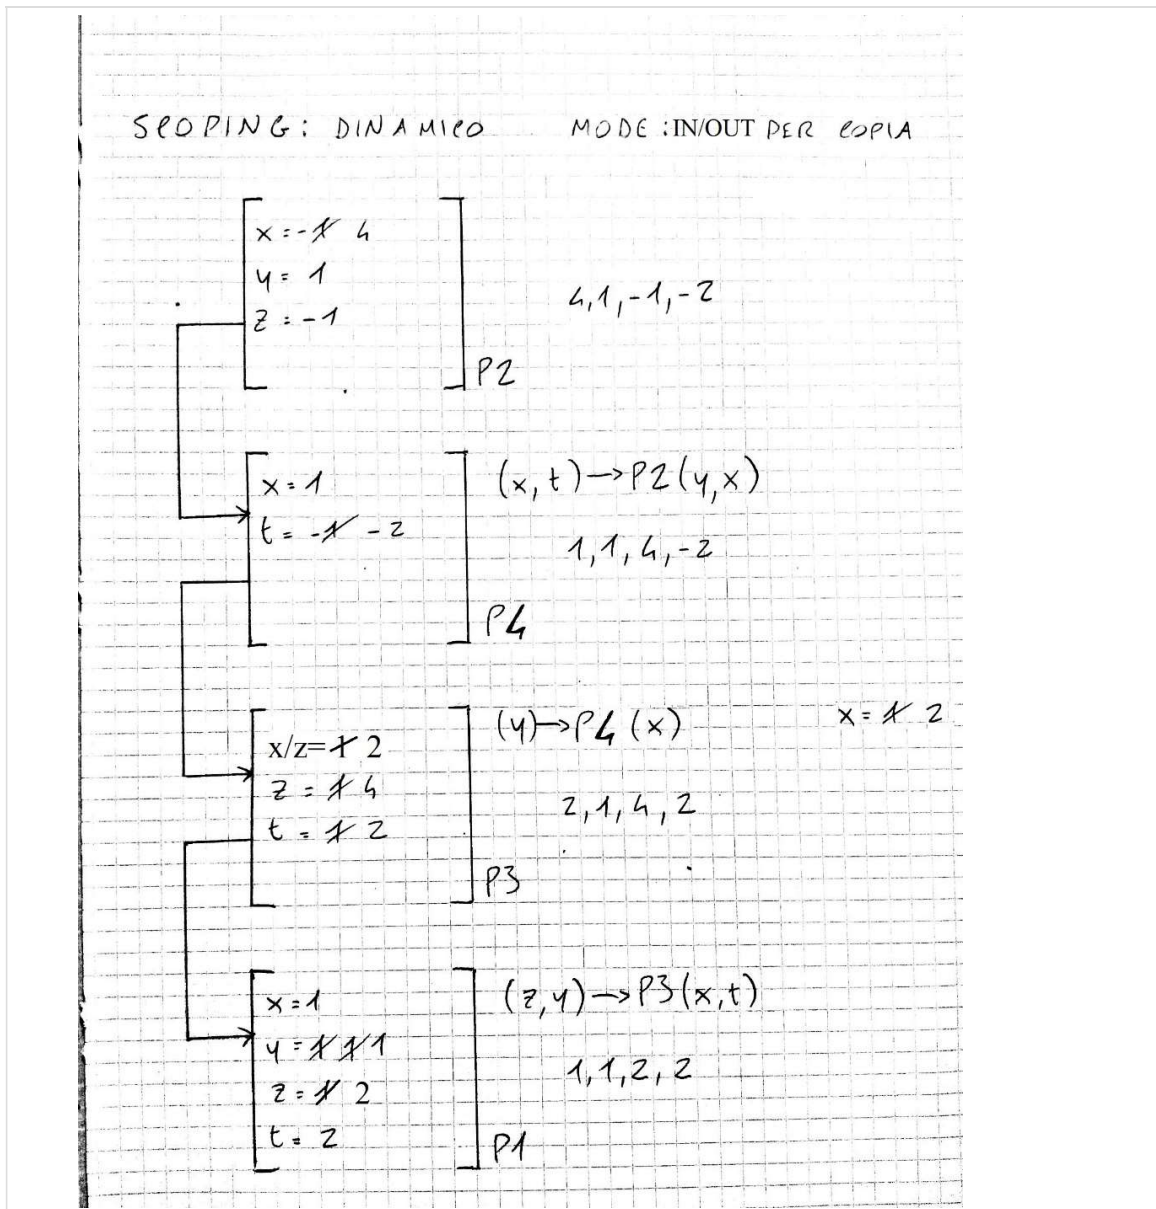 SCOPING: DINAMICO MODE: IN/OUT PER COPIA
x = -1 4
y = 1
z = -1
4, 1, -1, -2
P2
x = 1
t = -1 -2
(x, t) → P2 (y, x)
1, 1, 4, -2
P4
x/z= 1 2
z = 1 4
t = 1 2
(y) → P4 (x)
x = 1 2
2, 1, 4, 2
P3
x = 1
y = 1 1 1
z = 1 2
t = 2
(z, y) → P3 (x, t)
1, 1, 2, 2
P1